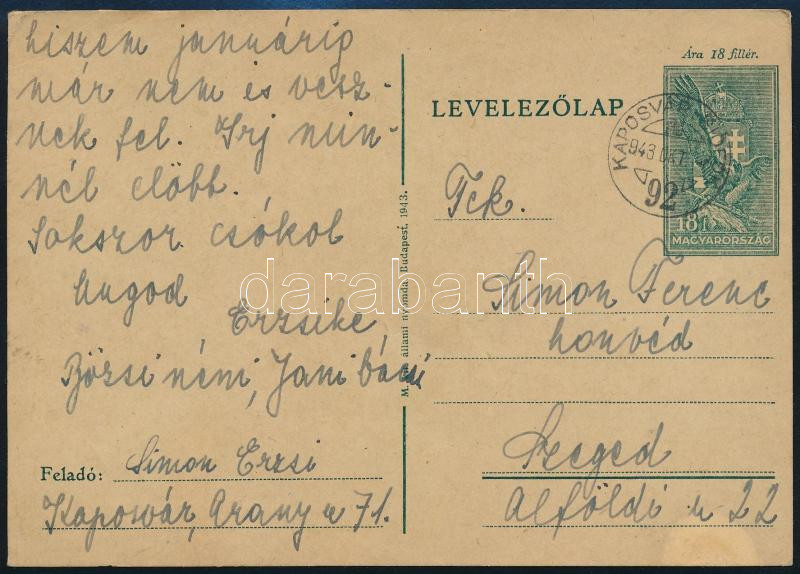 hiszem januárig
már nem is vesz-
nek fel. Irj min-
nél előbb.
Sokszor csókol
hugod
Erzsike
Börzsi néni, Jani bácsi
Feladó: Simon Erzsi
Kaposvár, Arany u 71.
M. állami nyomda, Budapest, 1943.
Ára 18 fillér.
LEVELEZŐLAP
KAPOSVÁR
943 OKT
92
18 f
MAGYARORSZÁG
Tek.
Simon Ferenc
honvéd
Szeged
Alföldi u 22
darabanth